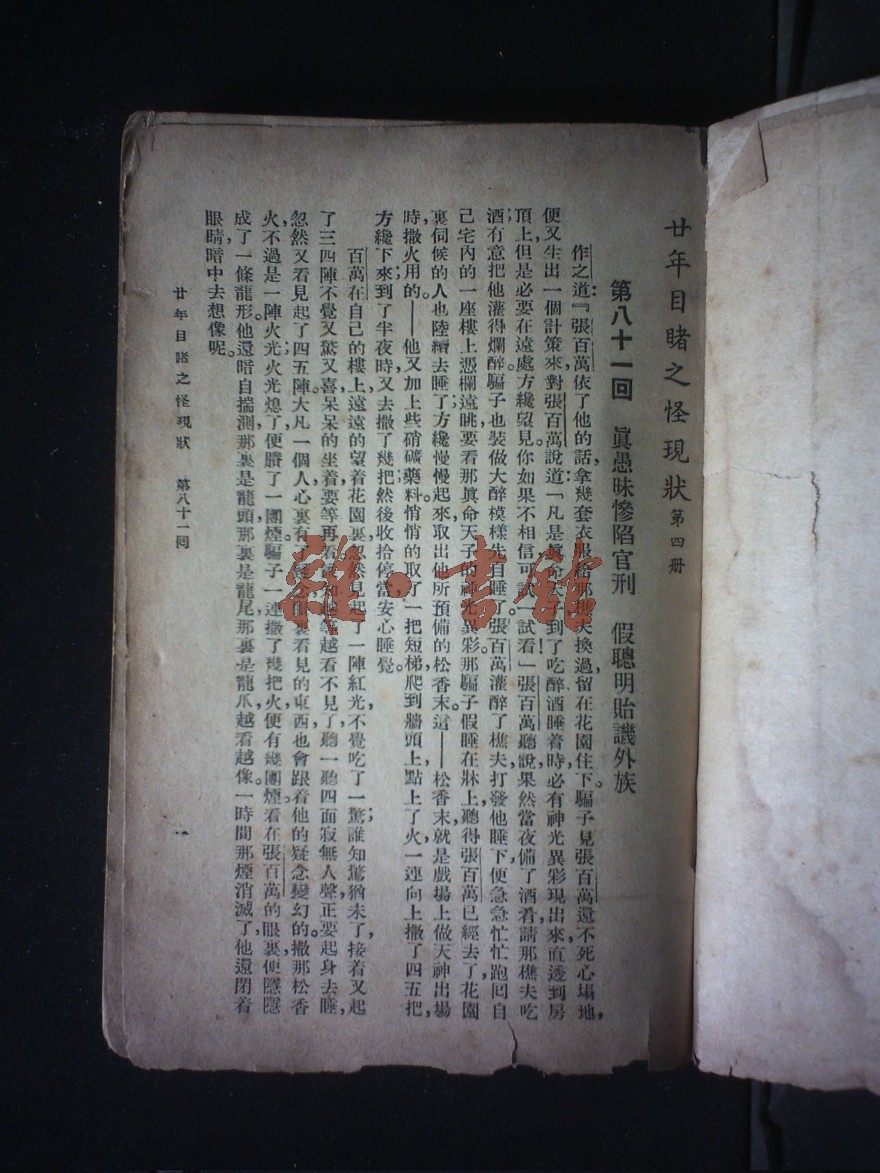 廿年目睹之怪現狀 第四册
第八十一回 眞愚昧慘陷官刑 假聰明貽譏外族
作之道:『張百萬依了他的話,拿幾套衣服給那樵夫換過,留在花園住下。騙子見張百萬還不死心塌地,
便又生出一個計策來,對張百萬說道:「凡是眞命天子,到了吃醉酒睡着時,必有神光異彩現出來,直透到房
頂上,但是必要在遠處方纔望見。你如果不相信,可試一試看」張百萬聽說,果然當夜備了酒肴,請那樵夫吃
酒,有意把他灌得爛醉;騙子也裝做大醉模樣,先自睡了。張百萬灌醉了樵夫,打發他睡下,便急急忙忙跑回自
己宅內的一座樓上,憑欄遠眺,要看那眞命天子的神光異彩。那騙子假睡在牀上,聽得張百萬已經去了,花園
裏伺候的人也陸續去睡了,方纔慢慢起來,取出他所預備的松香末,這——松香末,就是戲場上做天神出場
時撒火用的。——他又加上些硝磺藥料,悄悄的取了一把短梯,爬到牆頭上,點上了火,一連向上撒了四五把,
方纔下來;到了半夜時,又去撒了幾把;然後收拾停當,安心睡覺。
百萬在自己的樓上,遠遠的望着花園裏,忽然見起了一陣紅光,不覺吃了一驚;誰知驚猶未了,接着又起
了三四陣,不覺又驚又喜,呆呆的坐着,要等再看,越看不見了,聽一聽四面寂無人聲,正要起身去睡,
忽然又看見起了四五陣。大凡一個人心裏有了裏看見的東西,也會跟着他的疑念變幻的。撒那松香
火,不過是一陣火光;火光熄了,便賸了一團煙。騙子一連撒了幾把火,便有幾團煙。看在張百萬的眼裏,便隱隱
成了一條龍形。他還暗自揣測,那裏是龍頭,那裏是龍尾,那裏是龍爪,越看越像。一時間那煙消滅了,他還閉着
眼睛,暗中去想像呢。
廿年目睹之怪現狀 第八十一回
一
雜·書館